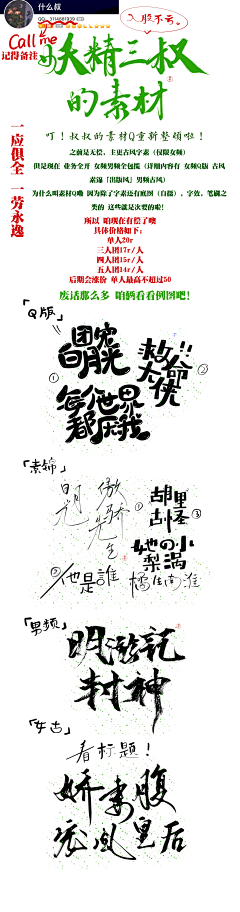 什么叔
入股不亏。
Call me
记得备注
妖精三叔
的素材
一应俱全 一劳永逸
叮！叔叔的素材Q重新整顿啦！
之前是无偿，主更古风字素（仅限女频）
但是现在 业务全开 女频男频全包揽（详细内容有 女频Q版 古风
素锦「出版风」男频古风）
为什么叫素材Q嘞 因为除了字素还有底图（自摄），字效，笔刷之
类的 这些就是次要的啦！
所以 咱现在有偿了噢
具体价格如下：
单人20r
三人团17r/人
四人团15r/人
五人团14r/人
后期会涨价 单人最高不超过50
废话那么多 咱俩看看例图吧！
「Q版」
团宠
白月光
①
救命!!
太优
②
每个世界
都厌我
「素锦」
明
傲骄
先生
①
胡里
胡圣
③
她の小
梨涡
②
他是誰
橘生南淮
「男频」
明游記
封神
「女古」
看标题！
娇妻腹
皇后